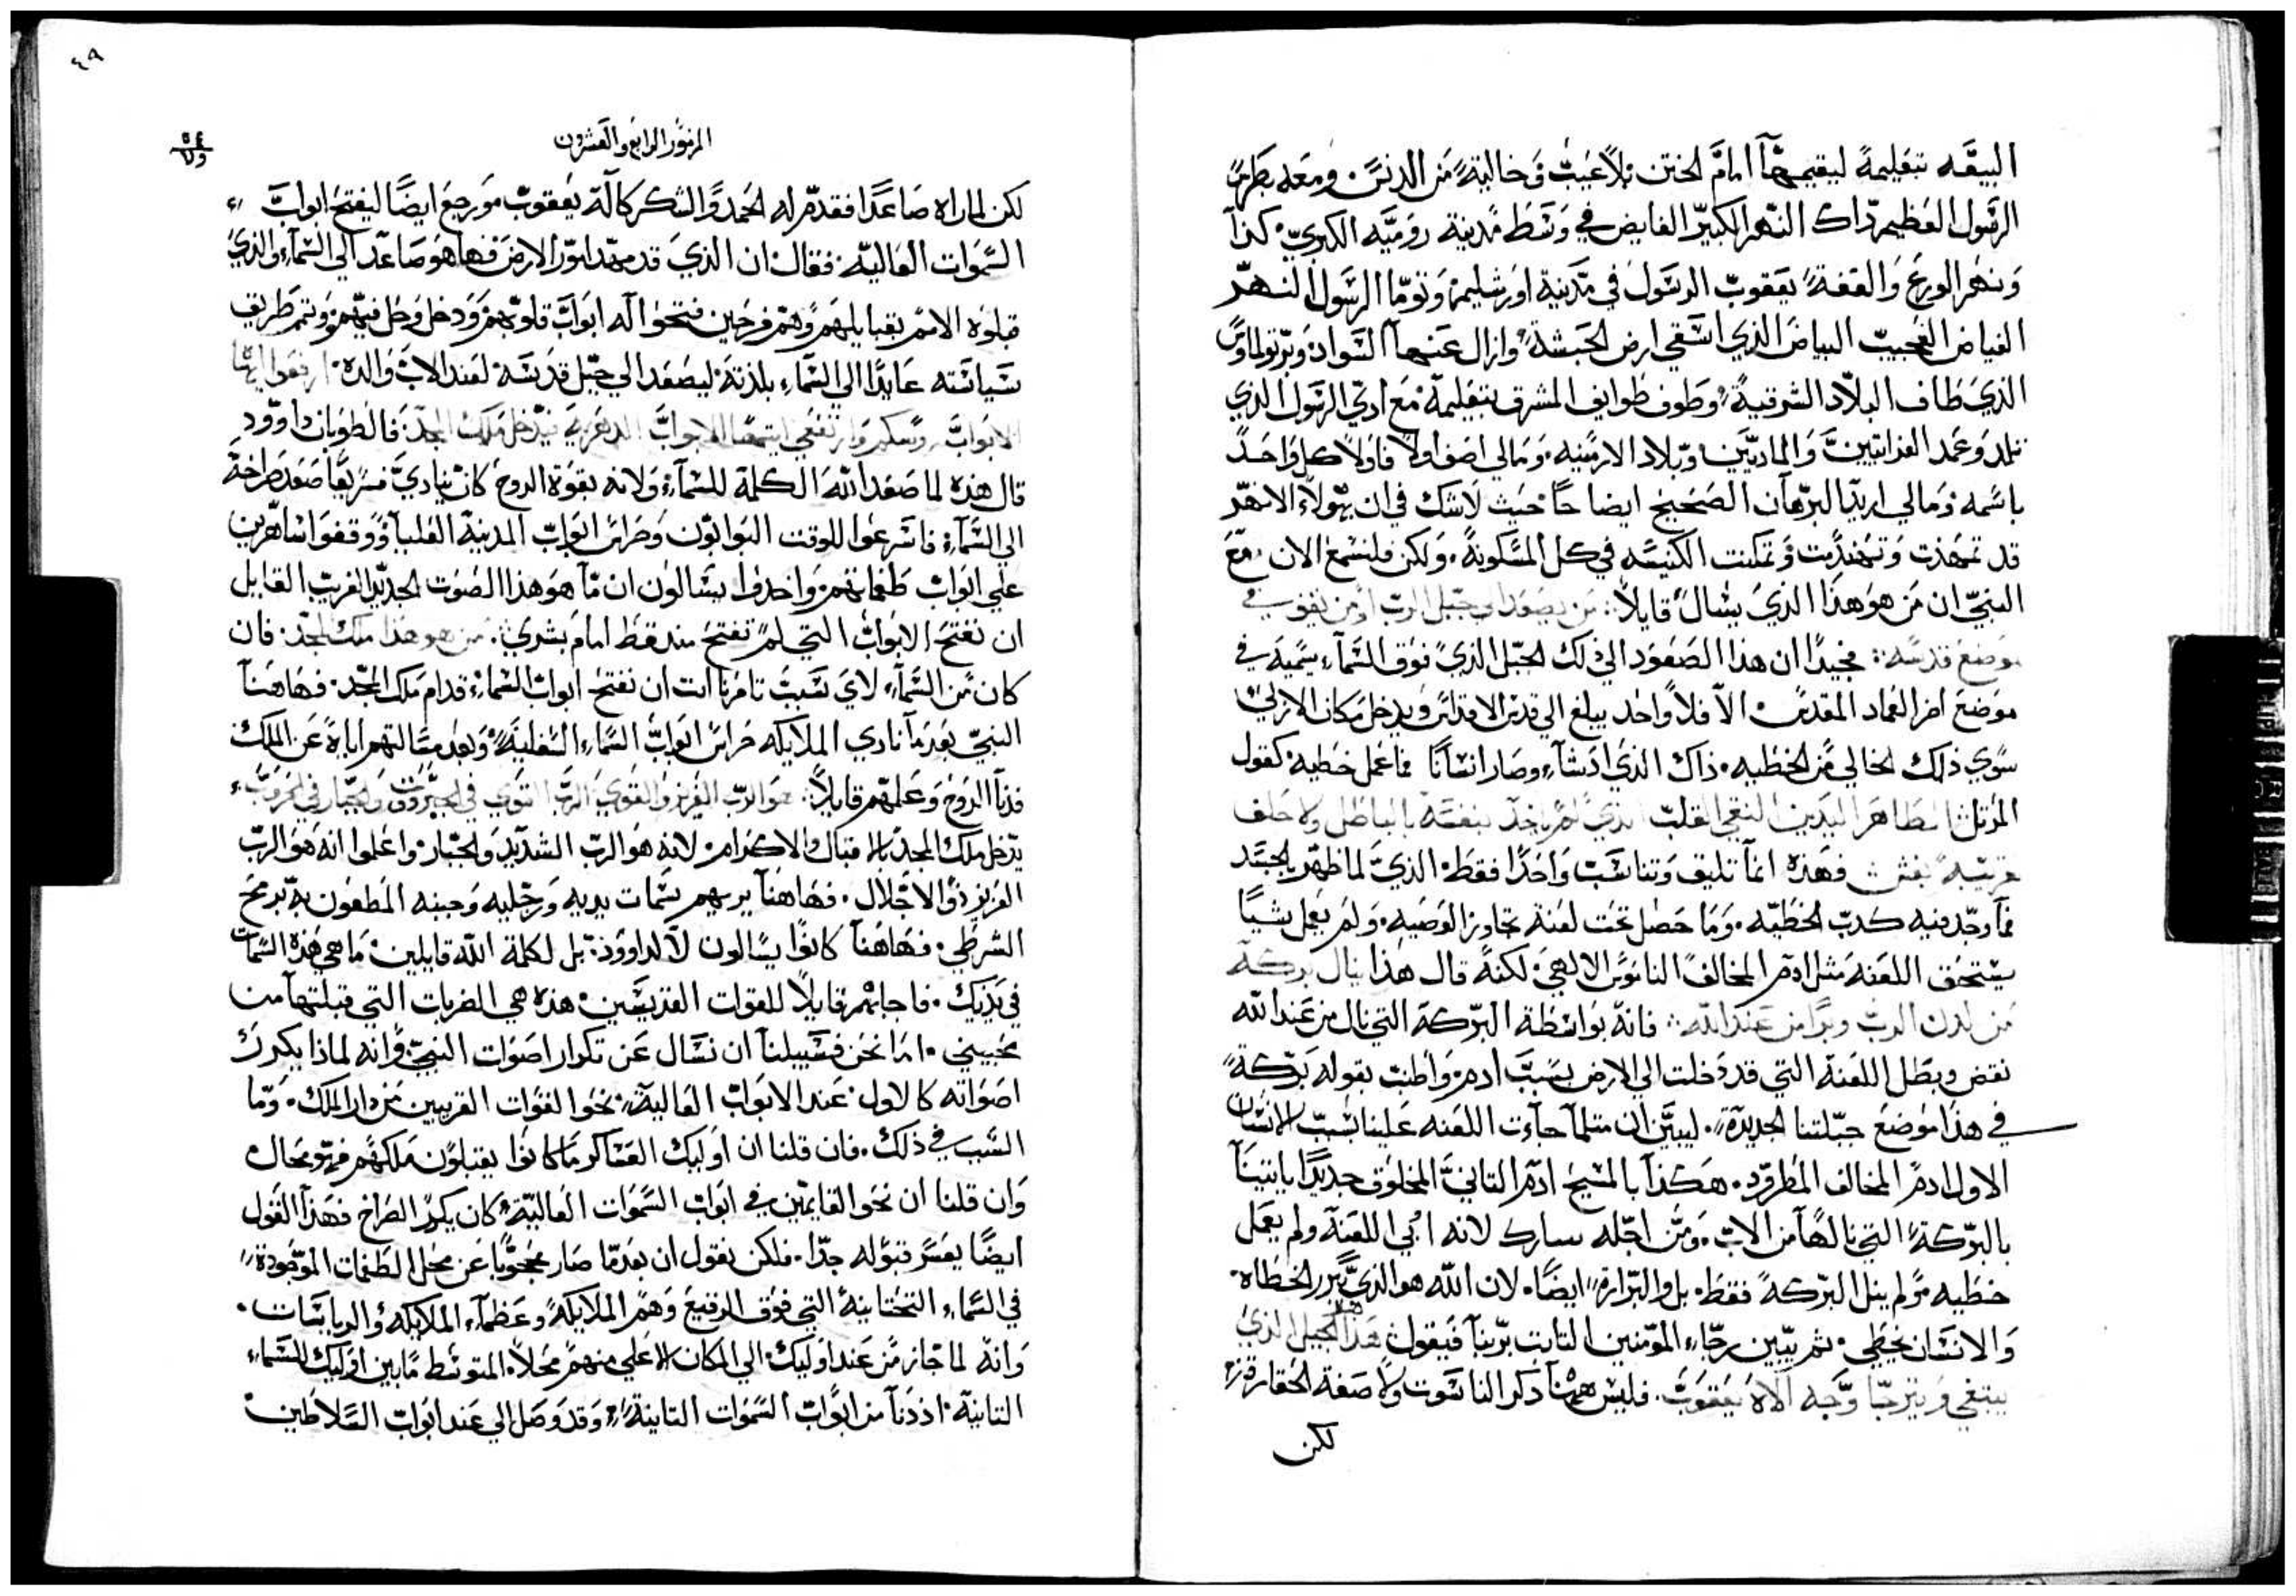 البيعَه بتعليمهِ ليقيمهآ امامَ الختن بلاً عَيبٍ وَخاليةً مَن الدنسَ. ومعَه بطرسَ
الرسَول العَظيم دَاك النَهر الكبيرَ الفايض في وَسَطَ مَدينة روميَّه الكبريَ. كذآ
وَنهر الورعَ وَالعَفةً يعَقوبَ الرسَول في مَدينة اورشليم. وَتومَا الرسَول النهرَ
الفياض العَجيبَ البياضَ الذي اسَقي ارض الحبَشة وازال عَنهاَ السَوادَ وَبرتولماوسَ
الذيَ طَاف البلاَد الشرقيةً وَطوف طَوايف المشرق بتعَليمهَ. مَعَ ادَي الرسَول الذي
تلمد وَعَمد الفراتيينَ وَالمادييَن وبَلاد الارمَنيه. وَمَالي اصَف اولاً فاولاً كل وَاحَدً
باسَمه. وَمالي اريدَ البرَهان الصَحيح ايضا حاً. حَيث لاَشك في ان هَولاءَ الانهرَ
قد تمهَدت وَتهندَمت وَتمكنت الكنيسَه في كل المسَكونةً. وَلكن فلنسَمعَ الان مَعَ
النبيَ ان مَن هوَ هذَا الذيَ يسَالً قايلاً. مَن يصَعَد الي جبَل الربَ اومَن يقوم في
موضعَ قدسَه: مجيبَاً ان هذا الصَعَود الي ذلك الجبَل الذيً فوق السَمآءِ يسَميهَ في
موَضعَ اخر العَماد المقدسَ. الاَ فلاً وَاحَد يبلغ الي قدسَ الاقداسَ وَيدخلَ مَكان الازليَ
سَوي ذلك الخالي مَن الخطَيه. ذاك الذيَ ادَشآءِ وصَار انسَاناً فما عمل خطَيه. كقول
المرَتل الطَاهر اليدَين النقي القلبَ الذيَ لمَ ياخذَ نفسَه بالباطَل ولاَ حَلف
لقريبَه بغش: فهَذه انمَا تليق وَتناسَبَ وَاحَدًا فقطَ. الذيَ لما ظهَر بالجسَد
فمآ وجَد فيه كدبَ الخطَيَه. وَمَا حَصَل تحَت لعَنة تجاوز الوَصَيه. وَلمَ يعَمل شَيًا
يسَتحَق اللعَنهَ مَثل ادمَ المخالفً الناموسَ الالهيَ. لكنهً قال هذَا ينال بركةَ
مَن لدن الربَ وبرًا من عَند الله: فانهَ بوَاسَطة البرَكة التي نال من عَند الله
نقض وبطَل اللعَنة التي قد دَخلت الي الارض بسَببَ ادم. وَاطنبَ بقوله بَركةً
في هذَا موضعَ جبَلتنا الجديدَة. ليبيَن ان مثلمآ جآءت اللعَنه عَلينا بسَببَ الانسَان
الاول ادمَ المخالف المطَرودَ. هَكذَا بالمسَيحَ ادمَ الثاني المخلوَق جديدًا ياتينَا
بالبرَكةً التي نالهَا من الابَ. وَمَن اجَله نبارك لانه ابي اللعَنة ولم يعَمل
خطَيه. وَلم ينل البَركهً فقطَ. بل والبَرارة ايضَاً. لان الله هوَ الذيَ يبَرر الخطَاه.
وَالانسَان يخطَي. ثم يبَين رجَاءِ المَومَنين الثابت برَبنآ فيَقول هذَا الجيل الذي
يبتغي وَيترجَا وجَه الاَه يعَقوبَ. فليسَ ههَنا ذكر الناسَوت وَلاَ صَفة الحقارة.
لكن
٤٩
المزمَور الرابعَ والعَشرون
لكن لما راه صَاعَدًا فقدمَ له الحَمد وًالشكر كالهَ يعَقوبَ. وَرجعَ ايضَاً ليفتحَ ابوابَ
السَموَات العَاليه. فقال ان الذيَ قد مهَد لنوَر الارضَ فهَا هوَ صَاعَد الي السَمآءِ والذي
قبلوَه الامَم بقبايلهمَ وَهمَ فرحَين فتحَوا له ابوَابَ قلوَبهم وَدخلَ وَحَل فيهَم. وَتمم طَريق
سَياسَته عَايدًا الي السَماءِ بلذتهَ. ليصَعَد الي جبَل قدسَه. لعَند الابَ وَالده. ارفعَوا ايهَا
الابَوابَ روسَكم وَارتفعَي ايتهَا الابوابَ الدهَرية فيدَخل مَلك المجدَ. فالطوَبان داوَود
قال هذه لما صَعَد الله الكلمة للسَمآءِ. وَلانه بقوَة الروحَ كان يناديَ فسَريعَاً صَعَد صَراخهَ
الي السَمآءِ. فاسَرعَوا للوقت البوابوَن وَحَراسَ ابوابَ المدينة العَليا. وَوَقفوَا سَاهَرين
علي ابوَابَ طَغماتهم. وَاخدوا يسَالوَن ان مآ هوَ هذا الصَوَت الجديدَ الغريبَ القايل
ان تفتحَ الابوَابَ التي لمَ تفتحَ مند قطَ امامَ بشريَ: مَن هو هذَا ملك المجدَ. فان
كان مَن السَمآءِ لايَ سَببَ تامَرنا انت ان نفتحَ ابوابَ السَماءِ قدام مَلك المجَد. فهَاهَنآ
النبيَ بعَد مآ نادي الملايكه حَراسَ ابوَابَ السَماءِ السَفليةَ. وَبعَد مسَالتهم اياهَ عَن الملك
فدنآ الروحَ وَعَلمهَم قايلاً: هوَ الربَ العَزيز وَالقويَ الربَ القوَي في الجبَروت وَالجبَار في الحَروبَ.
يدَخل ملك المجدَ بالاقبال والاكرام. لانه هوَ الربَ الشديدَ وَالجبَار. واعَلموا انه هَوَ الربَ
العَزيز ذو الاجَلال. فهَاهنآ يريهم سَمات يديه وَرجَليه وَجنبه المطَعَون بهَ برمحَ
الشرطَي. فهَاهَنآ كانوَا يسَالون لاَ لداووَد. بل لكلمة الله قايلين. مَا هي هَذه السَمات
في يَدَيك. فاجابهَم قايلاً للقوات القديسَين. هذه هي الضربات التي قبلتهآ من
محَبيني. امَا نحَن فسَبيلنا ان نسَال عَن تكرار اصَوَات النبيَ وَانه لماذا يكررَ
اصَوَاته كالاول. عَند الابوَابَ العَاليةَ. نحَو القوَات القريبين مَن دار الملك. وَمَا
السَبب في ذلك. فان قلنا ان اوَليك العَسَاكر مَا كانوَا يقبلوَن مَلكهَم فهَو محَال.
وَان قلنا ان نحَو القايمَين في ابوَابَ السَموَات العَاليةَ كان يكررَ الصَراخ فهَذا القوَل
ايضًا يعَسَر قبوَله جدَا. فلكن نقول ان بعَد مَا صَار محَجوَبًا عَن محَل الطَغمات الموَجودة
في السَماءِ التحَتانية التي فوَق الرقيعَ وَهمَ الملايكةً وَعَظمآءِ الملايكه والرياسَات.
وَانهَ لما جاز مَن عَند اوَليك. الي المكان الاعَلي منهمَ محَلاً. المتوسَط مَابين اوَليك للسَماءِ
الثانيهَ. اذ دنآ من ابَوابَ السَموَات الثانيةَ. وَقد وَصَل الي عَند ابَوابَ السَلاطَين.